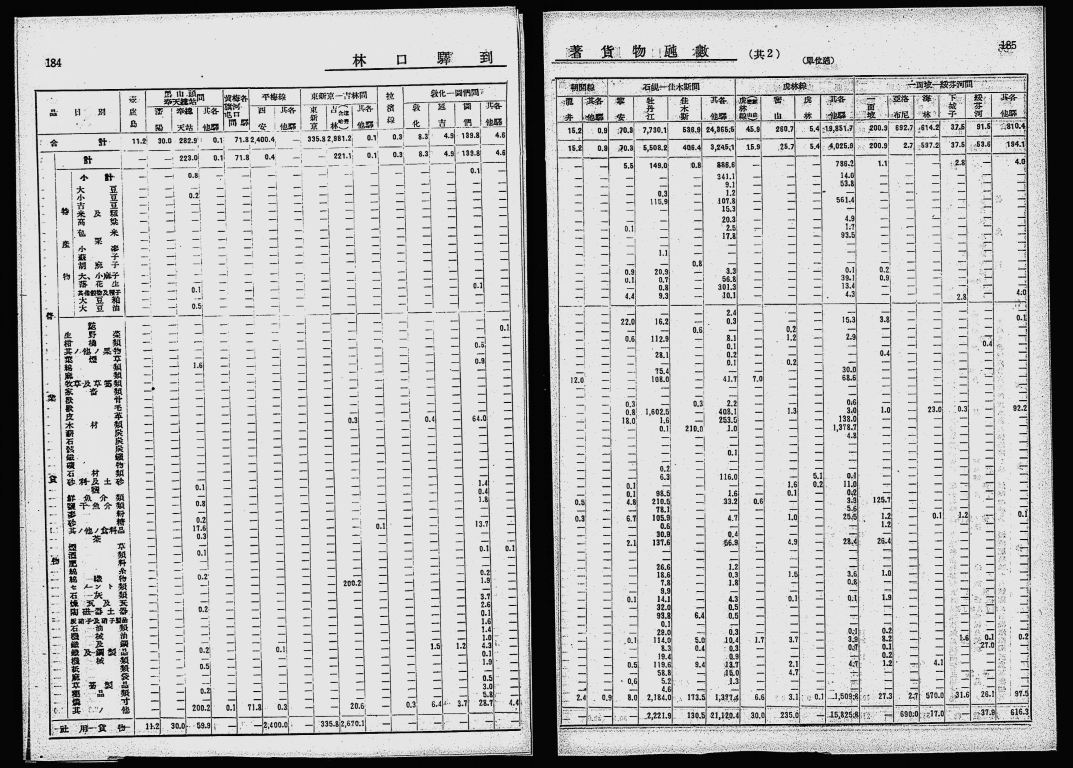 184
林口驛到
品目別
壺盧島
平梅線
東新京—吉林間
拉濱線
敦化—圖們間
西安
其各他驛
東新京
其各他驛
敦化
延吉
圖們
其各他驛
合計 11.2 30.0 282.9 0.1 71.8 2,400.4 335.8 2,981.2 0.1 0.3 8.3 4.9 139.8 4.6
計 223.0 0.1 71.8 0.4 221.1 0.1 0.3 8.3 4.9 139.8 4.6
小計 0.8 0.1
大豆
小豆 0.2
吉豆
米及籾
高粱
包米
粟
小麥
蘇子
胡麻子
大、小麻子
落花生 0.1
其他穀物及種子 0.1
大豆粕
大豆油 0.5
生野菜 0.1
柑橘類
其ノ他ノ果物 0.6
葉煙草
綿類 1.6 0.9
麻類
牧草及草藁類
家畜類
獸骨
獸毛
皮革
木材類 0.3 0.4 64.0
薪炭
石炭
骸炭
鐵鑛
鑛物
石材類
砂利及土砂
鹽 0.1 1.4
鮮魚介類 0.4
鹽干魚介類 0.8 1.8
麥粉
砂糖 0.2
其ノ他ノ食料品 17.6 0.1 13.7
茶 0.3
煙草
酒類 0.1 0.1 0.1
肥料
綿糸
綿織物 0.2 0.2
セメント類 200.2 1.9
石灰類
煉瓦及瓦 3.7
陶磁器土器 0.2 2.6
0.1
石油類 1.6
機械油 1.4
鐵及鋼 1.0
鐵及鋼製品 0.2 0.1 1.5 1.2 4.3
機械類 0.1
紙類 0.5 1.9
麻袋
草藁製品 0.5
藥品類 0.2 3.0
燐寸 5.8
其ノ他 200.2 0.1 71.8 0.3 20.6 0.3 6.4 3.7 28.7 4.4
社用貨物 11.2 30.0 59.9 2,400.0 335.8 2,670.1
著貨物噸數 (共2)
(單位瓲)
185
朝開線
石硯—佳木斯間
虎林線
龍井
其各他驛
寧安
牡丹江
佳木斯
其各他驛
密山
虎林
其各他驛
一面坡
亞布洛尼
海林
下城子
綏芬河
其各他驛
15.2 0.9 70.9 7,730.1 536.9 24,365.6 45.9 260.7 5.4 19,851.7 200.9 692.7 614.2 37.5 91.5 810.4
15.2 0.9 70.9 5,508.2 406.4 3,245.1 15.9 25.7 5.4 4,025.9 200.9 2.7 597.2 37.5 53.6 194.1
5.5 149.0 0.8 886.6 786.2 1.1 2.8 4.0
341.1 14.0
9.1 53.8
0.3 1.2
115.9 107.8 561.4
15.3
20.3 4.9
0.1 2.5 1.7
17.8 93.5
1.1
0.8
0.9 20.9 3.3 0.1 0.2
0.1 0.7 56.8 39.1 0.9
0.8 301.3 13.4
4.4 9.3 10.1 4.3 2.8 4.0
2.4
22.0 16.2 0.3 15.3 3.8 0.1
0.6 0.2
0.6 112.9 8.1 1.2 2.9
0.1 0.4
28.1 0.2 0.4
0.1 0.2
75.4 30.0
12.0 108.0 41.7 7.0 68.6
0.3 0.3 2.2 0.6
0.8 1,602.5 408.1 1.3 3.0 1.0 23.0 0.3 92.2
18.0 1.6 253.5 138.0
0.1 210.0 1.0 1,378.7
4.8
0.1
0.2
6.3 116.0 5.1 0.1
0.1 1.6 0.2 11.0
0.1 98.5 1.6 0.1 0.2
0.5 4.8 210.5 33.2 0.6 3.3 125.7
78.1 5.6
0.3 6.7 105.9 4.7 1.0 25.5 1.2 0.1 1.2 0.1
0.6 1.2
30.9 0.4
2.1 137.6 56.9 4.9 28.4 26.4
26.6 1.2
18.6 0.3 1.5 3.6 1.0
7.8 1.8 0.8
9.9
0.1 14.1 4.3 0.1 0.1 1.9
32.0 0.5
93.8 6.4 0.5
0.1
29.0 0.3 0.1 0.2
0.1 114.0 5.0 10.4 1.7 3.7 3.9 8.2 1.6 0.1 0.2
8.3 0.4 0.3 0.7 0.1 27.0
19.4 0.9 0.2
0.5 119.6 9.4 13.7 2.1 4.7 1.2 4.1
58.8 15.0 4.7
0.6 5.2 1.3
4.6
2.4 0.9 8.0 2,184.0 173.5 1,377.4 6.6 3.1 0.1 1,509.8 27.3 2.7 570.0 31.6 26.1 97.5
2,221.9 130.5 21,120.4 30.0 235.0 15,825.8 690.0 17.0 37.9 616.3